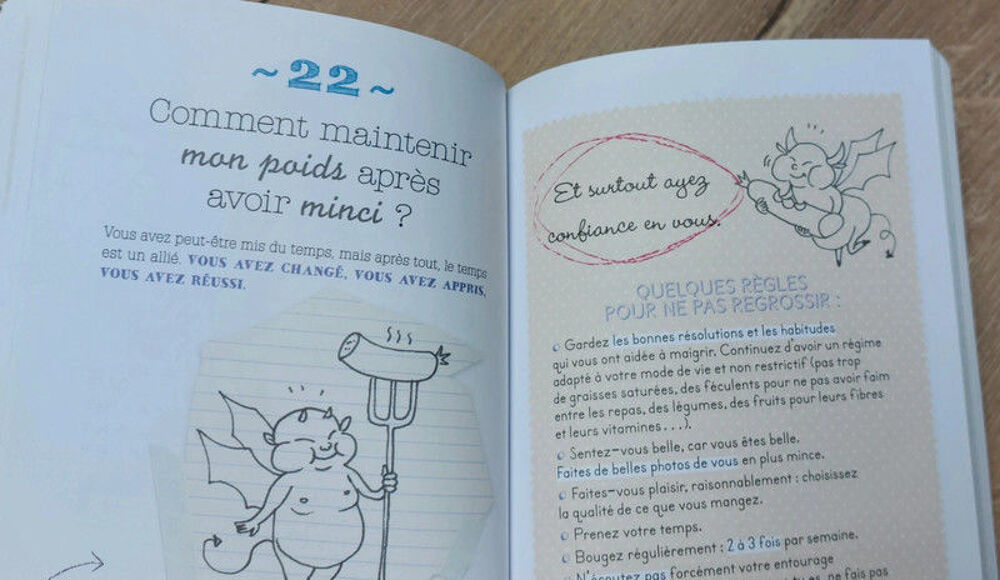 ~ 22 ~
Comment maintenir
mon poids après
avoir minci ?
Vous avez peut-être mis du temps, mais après tout, le temps
est un allié. VOUS AVEZ CHANGÉ, VOUS AVEZ APPRIS,
VOUS AVEZ RÉUSSI.
Et surtout ayez
confiance en vous.
QUELQUES RÈGLES
POUR NE PAS REGROSSIR :
Gardez les bonnes résolutions et les habitudes
qui vous ont aidée à maigrir. Continuez d'avoir un régime
adapté à votre mode de vie et non restrictif (pas trop
de graisses saturées, des féculents pour ne pas avoir faim
entre les repas, des légumes, des fruits pour leurs fibres
et leurs vitamines...).
Sentez-vous belle, car vous êtes belle.
Faites de belles photos de vous en plus mince.
Faites-vous plaisir, raisonnablement : choisissez
la qualité de ce que vous mangez.
Prenez votre temps.
Bougez régulièrement : 2 à 3 fois par semaine.
N'écoutez pas forcément votre entourage
ne fais pas